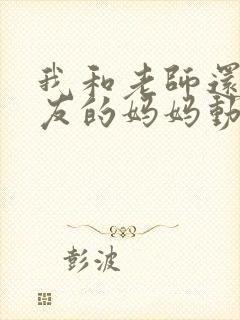 我和老師還
友的妈妈動
彭波